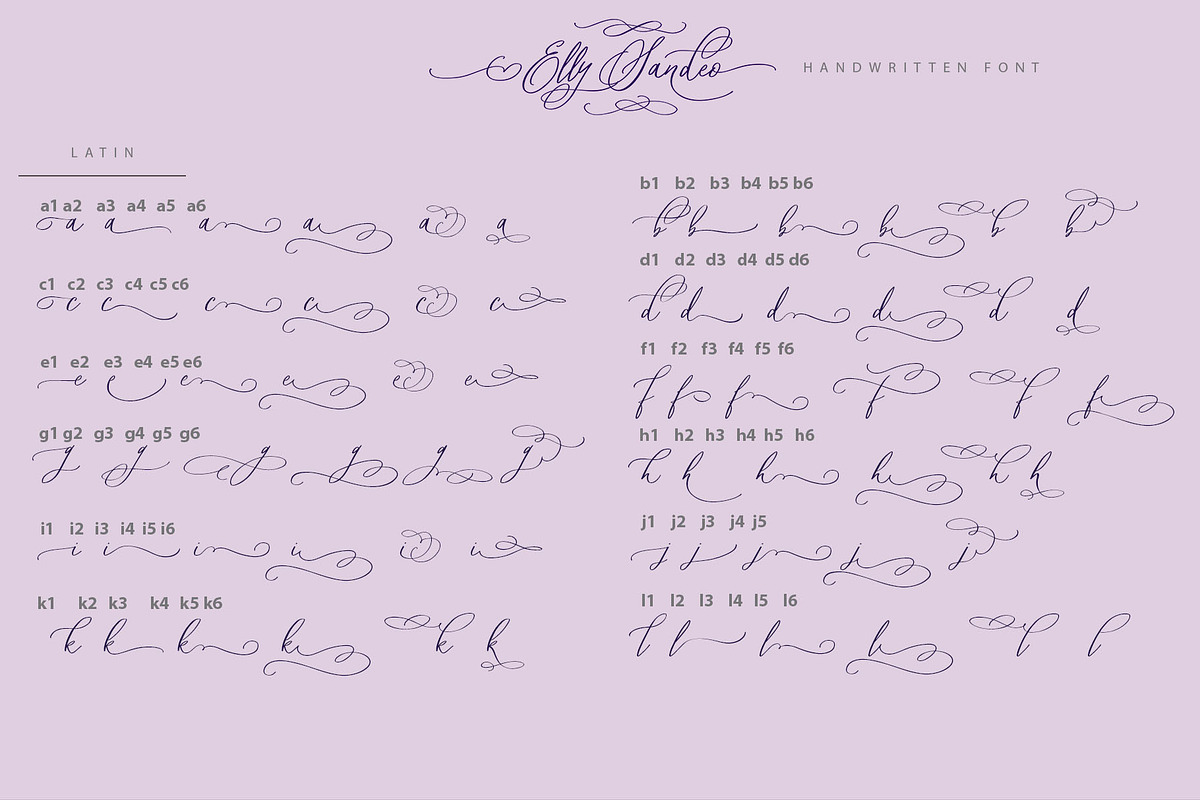 Elly Sandeo
HANDWRITTEN FONT
LATIN
a1 a2 a3 a4 a5 a6
a a a a a a
c1 c2 c3 c4 c5 c6
c c c c c c
e1 e2 e3 e4 e5 e6
e e e e e e
g1 g2 g3 g4 g5 g6
g g g g g g
i1 i2 i3 i4 i5 i6
i i i i i i
k1 k2 k3 k4 k5 k6
k k k k k k
b1 b2 b3 b4 b5 b6
b b b b b b
d1 d2 d3 d4 d5 d6
d d d d d d
f1 f2 f3 f4 f5 f6
f f f f f f
h1 h2 h3 h4 h5 h6
h h h h h h
j1 j2 j3 j4 j5
j j j j j
l1 l2 l3 l4 l5 l6
l l l l l l